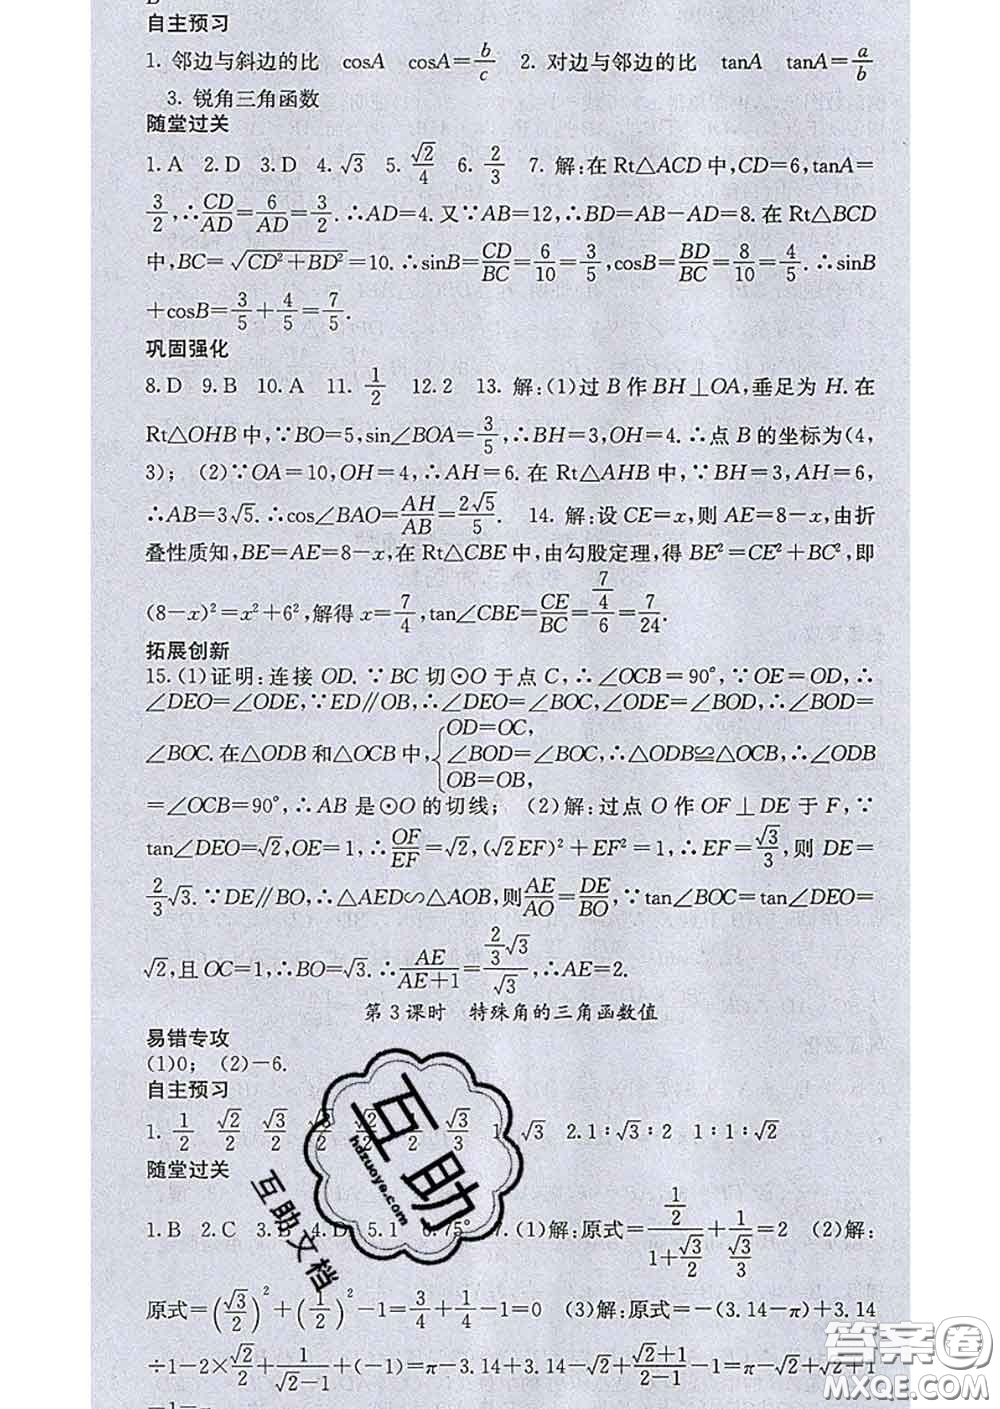 自主预习
1. 邻边与斜边的比 cosA cosA=b/c 2. 对边与邻边的比 tanA tanA=a/b
3. 锐角三角函数
随堂过关
1. A 2. D 3. D 4. √3 5. √2/4 6. 2/3 7. 解:在 Rt△ACD 中,CD=6,tanA=
3/2,∴CD/AD=6/AD=3/2.∴AD=4.又∵AB=12,∴BD=AB-AD=8.在 Rt△BCD
中,BC=√(CD²+BD²)=10.∴sinB=CD/BC=6/10=3/5,cosB=BD/BC=8/10=4/5.∴sinB
+cosB=3/5+4/5=7/5.
巩固强化
8. D 9. B 10. A 11. 1/2 12. 2 13. 解:(1)过 B 作 BH⊥OA,垂足为 H.在
Rt△OHB 中,∵BO=5,sin∠BOA=3/5,∴BH=3,OH=4.∴点 B 的坐标为(4,
3); (2)∵OA=10,OH=4,∴AH=6.在 Rt△AHB 中,∵BH=3,AH=6,
∴AB=3√5.∴cos∠BAO=AH/AB=2√5/5. 14. 解:设 CE=x,则 AE=8-x,由折
叠性质知,BE=AE=8-x,在 Rt△CBE 中,由勾股定理,得 BE²=CE²+BC²,即
(8-x)²=x²+6²,解得 x=7/4,tan∠CBE=CE/BC=(7/4)/6=7/24.
拓展创新
15. (1)证明:连接 OD.∵BC 切⊙O 于点 C,∴∠OCB=90°,∵OE=OD,∴
∠DEO=∠ODE,∵ED∥OB,∴∠DEO=∠BOC,∠ODE=∠BOD,∴∠BOD=
∠BOC.在△ODB 和△OCB 中,{OD=OC, ∠BOD=∠BOC, OB=OB, ∴△ODB≌△OCB,∴∠ODB
=∠OCB=90°,∴AB 是⊙O 的切线; (2)解:过点 O 作 OF⊥DE 于 F,∵
tan∠DEO=√2,OE=1,∴OF/EF=√2,(√2EF)²+EF²=1,∴EF=√3/3,则 DE=
2/3√3.∵DE∥BO,∴△AED∽△AOB,则AE/AO=DE/BO,∵tan∠BOC=tan∠DEO=
√2,且 OC=1,∴BO=√3.∴AE/(AE+1)=(2/3√3)/√3,∴AE=2.
第 3 课时 特殊角的三角函数值
易错专攻
(1)0; (2)-6.
自主预习
1. 1/2 √2/2 √3/2 √3/2 √2/2 1/2 √3/3 1 √3 2. 1∶√3∶2 1∶1∶√2
随堂过关
1. B 2. C 3. B 4. D 5. 1 6. 75° 7. (1)解:原式=(1/2)/(1+√3/2)+1/(√3/3)=2 (2)解:
原式=(√3/2)²+(1/2)²-1=3/4+1/4-1=0 (3)解:原式=-(3.14-π)+3.14
÷1-2×√2/2+1/(√2-1)+(-1)=π-3.14+3.14-√2+(√2+1)/(2-1)-1=π-√2+√2+1
互助
hdzuoye.com
互助文档
答案圈
MXQE.COM